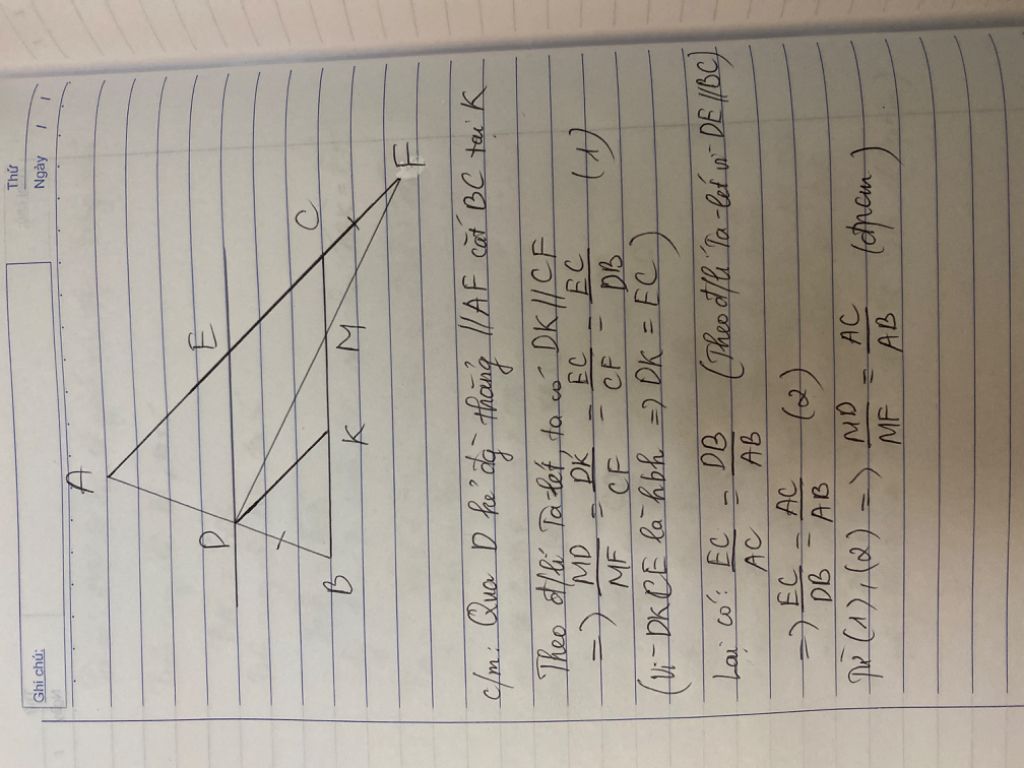 Thứ
Ngày / /
Ghi chú:
A
D E
B K M C
F
c/m: Qua D kẻ đg thẳng // AF cắt BC tại K
Theo đ/lí Ta-lét, ta có DK // CF
=> MD/MF = DK/CF = EC/CF = EC/DB (1)
(Vì DKCE là hbh => DK = EC)
Lại có: EC/AC = DB/AB (Theo đ/lí Ta-lét vì DE // BC)
=> EC/DB = AC/AB (2)
Từ (1), (2) => MD/MF = AC/AB (đpcm)